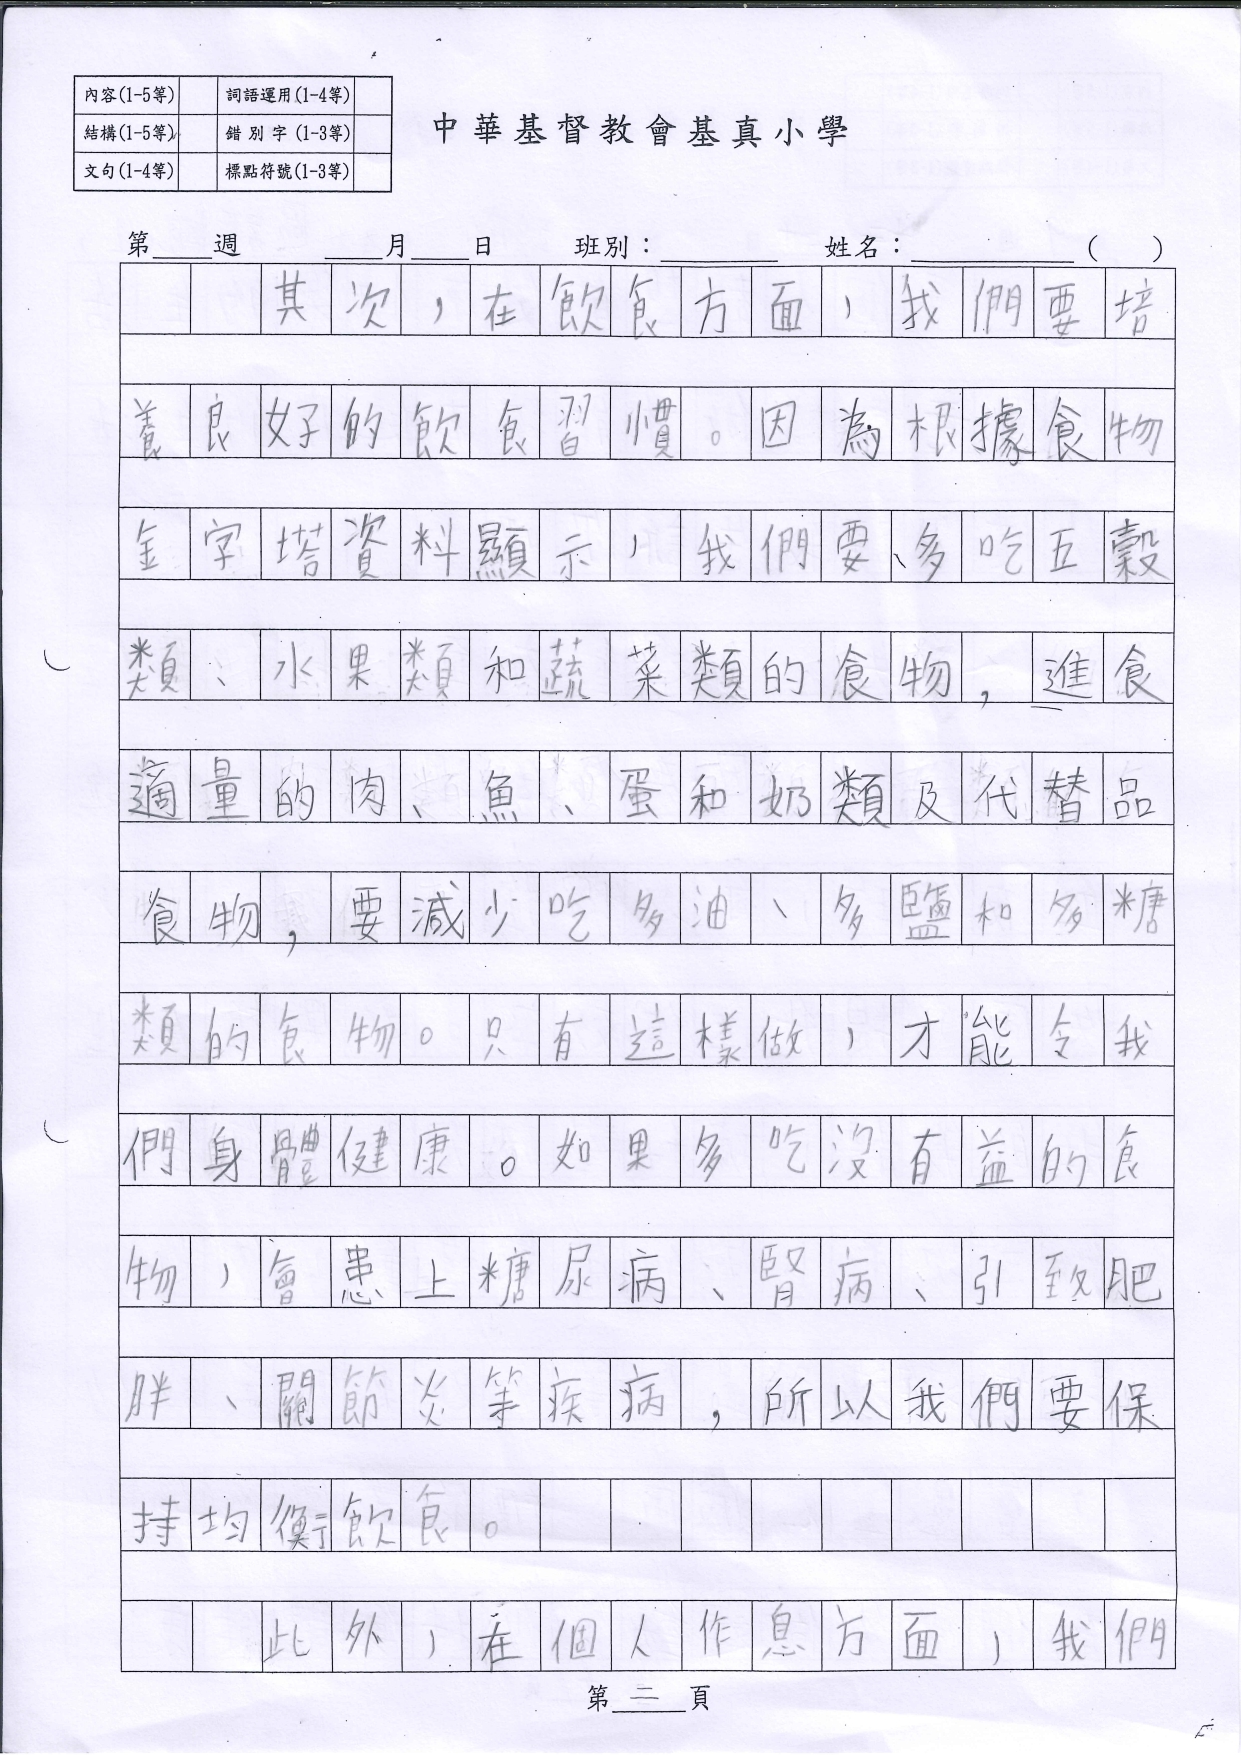 內容(1-5等) 詞語運用(1-4等)
結構(1-5等) 錯別字(1-3等)
文句(1-4等) 標點符號(1-3等)
中華基督教會基真小學
第____週 ____月____日 班別：________ 姓名：___________ ( )
其次，在飲食方面，我們要培
養良好的飲食習慣。因為根據食物
金字塔資料顯示，我們要、多吃五穀
類、水果類和蔬菜類的食物，進食
適量的肉、魚、蛋和奶類及代替品
食物，要減少吃多油、多鹽和多糖
類的食物。只有這樣做，才能令我
們身體健康。如果多吃沒有益的食
物，會患上糖尿病、腎病、引致肥
胖、關節炎等疾病，所以我們要保
持均衡飲食。
此外，在個人作息方面，我們
第二頁